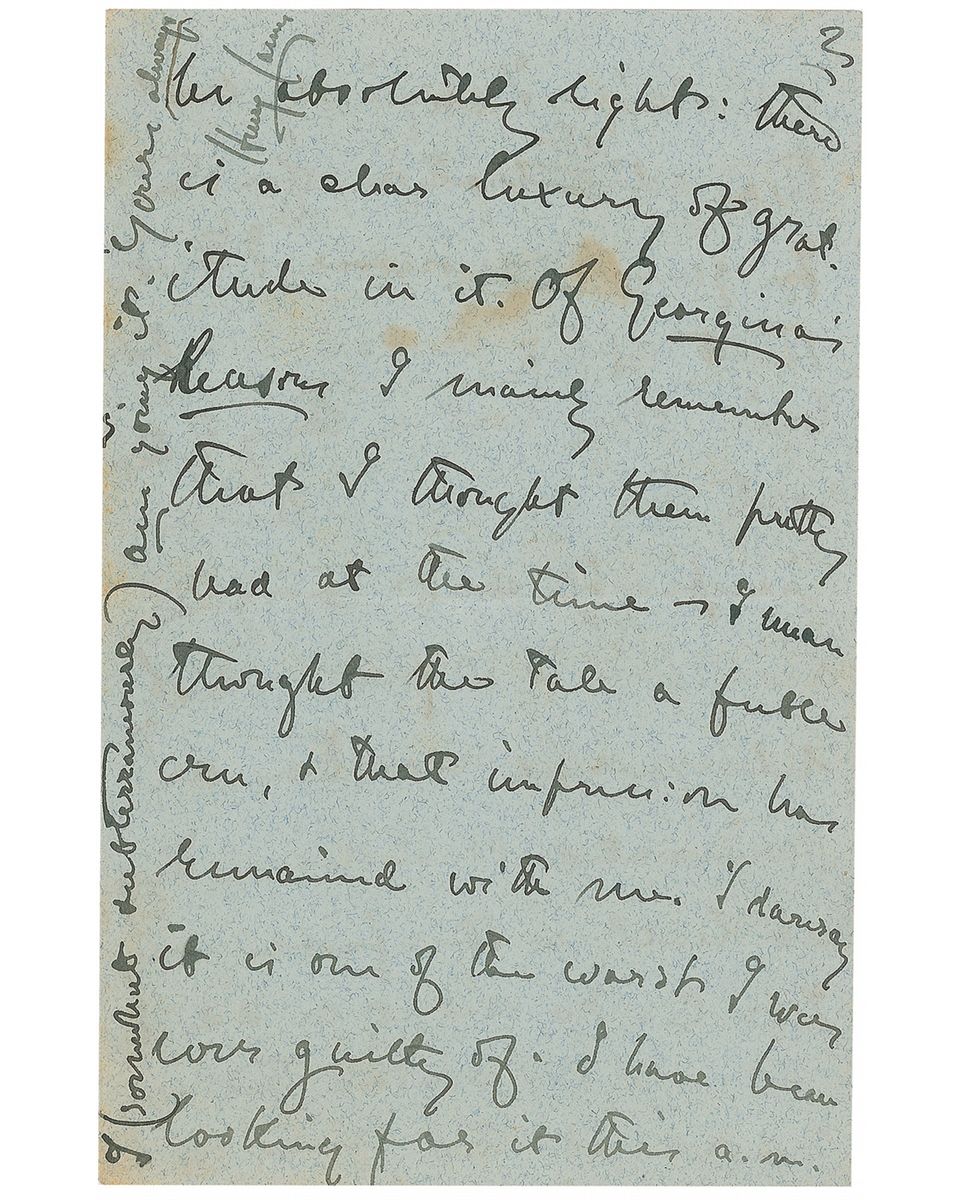 3
be absolutely right: there
is a clear luxury of grat-
itude in it. Of Georgina's
Reasons I mainly remember
that I thought them pretty
bad at the time — I mean
thought the Tale a feeble
one, & that impression has
remained with me. I daresay
it is one of the worst I was
ever guilty of. I have been
looking for it this a.m.
& (somewhat subterraneously) am doing it. Yours always
Henry James